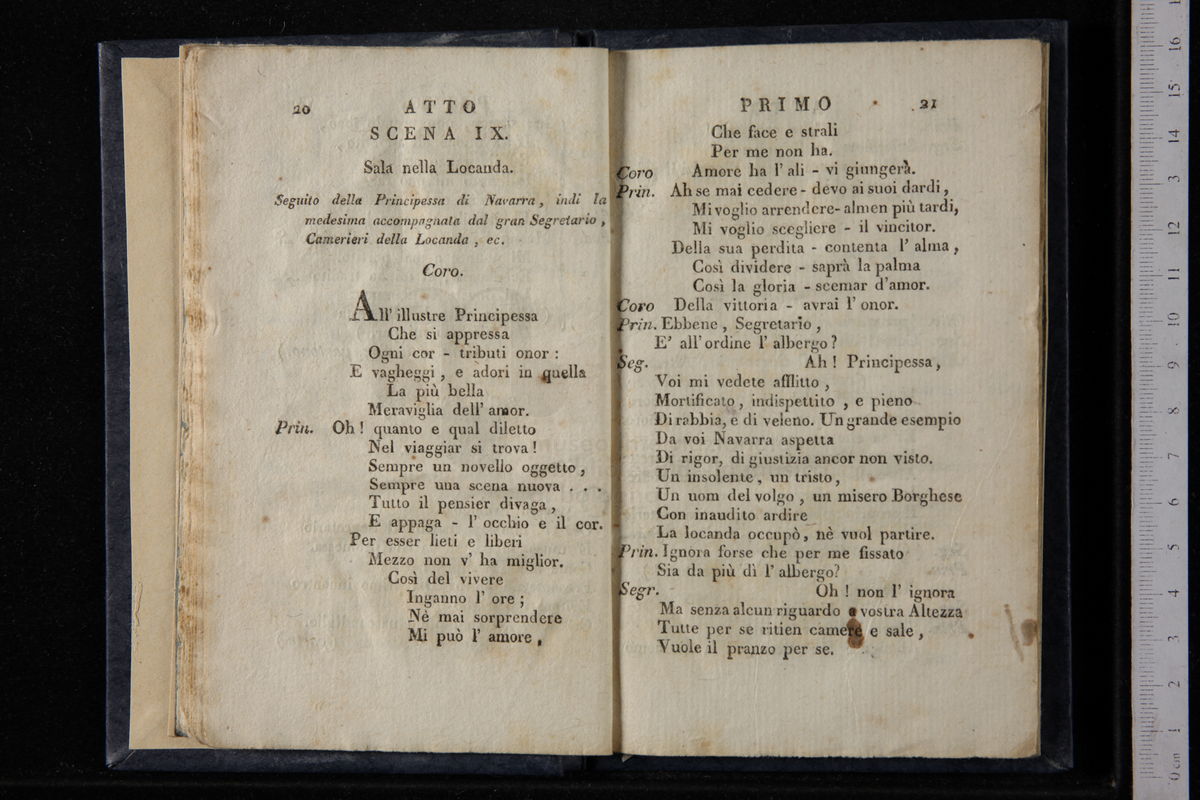 20 ATTO
SCENA IX.
Sala nella Locanda.
Seguito della Principessa di Navarra, indi la
medesima accompagnata dal gran Segretario,
Camerieri della Locanda, ec.
Coro.
All' illustre Principessa
Che si appressa
Ogni cor - tributi onor :
E vagheggi , e adori in quella
La più bella
Meraviglia dell' amor.
Prin. Oh ! quanto e qual diletto
Nel viaggiar si trova !
Sempre un novello oggetto ,
Sempre una scena nuova . . .
Tutto il pensier divaga ,
E appaga - l' occhio e il cor.
Per esser lieti e liberi
Mezzo non v' ha miglior.
Così del vivere
Inganno l' ore ;
Nè mai sorprendere
Mi può l' amore ,
PRIMO 21
Che face e strali
Per me non ha.
Coro Amore ha l' ali - vi giungerà.
Prin. Ah se mai cedere - devo ai suoi dardi ,
Mi voglio arrendere - almen più tardi,
Mi voglio scegliere - il vincitor.
Della sua perdita - contenta l' alma ,
Così dividere - saprà la palma
Così la gloria - scemar d'amor.
Coro Della vittoria - avrai l' onor.
Prin. Ebbene , Segretario ,
E' all' ordine l' albergo ?
Seg. Ah ! Principessa ,
Voi mi vedete afflitto ,
Mortificato , indispettito , e pieno
Di rabbia, e di veleno. Un grande esempio
Da voi Navarra aspetta
Di rigor, di giustizia ancor non visto.
Un insolente , un tristo ,
Un uom del volgo , un misero Borghese
Con inaudito ardire
La locanda occupò , nè vuol partire.
Prin. Ignora forse che per me fissato
Sia da più dì l' albergo?
Segr. Oh ! non l' ignora
Ma senza alcun riguardo a vostra Altezza
Tutte per se ritien camere e sale ,
Vuole il pranzo per se.
0 cm 1 2 3 4 5 6 7 8 9 10 11 12 13 14 15 16